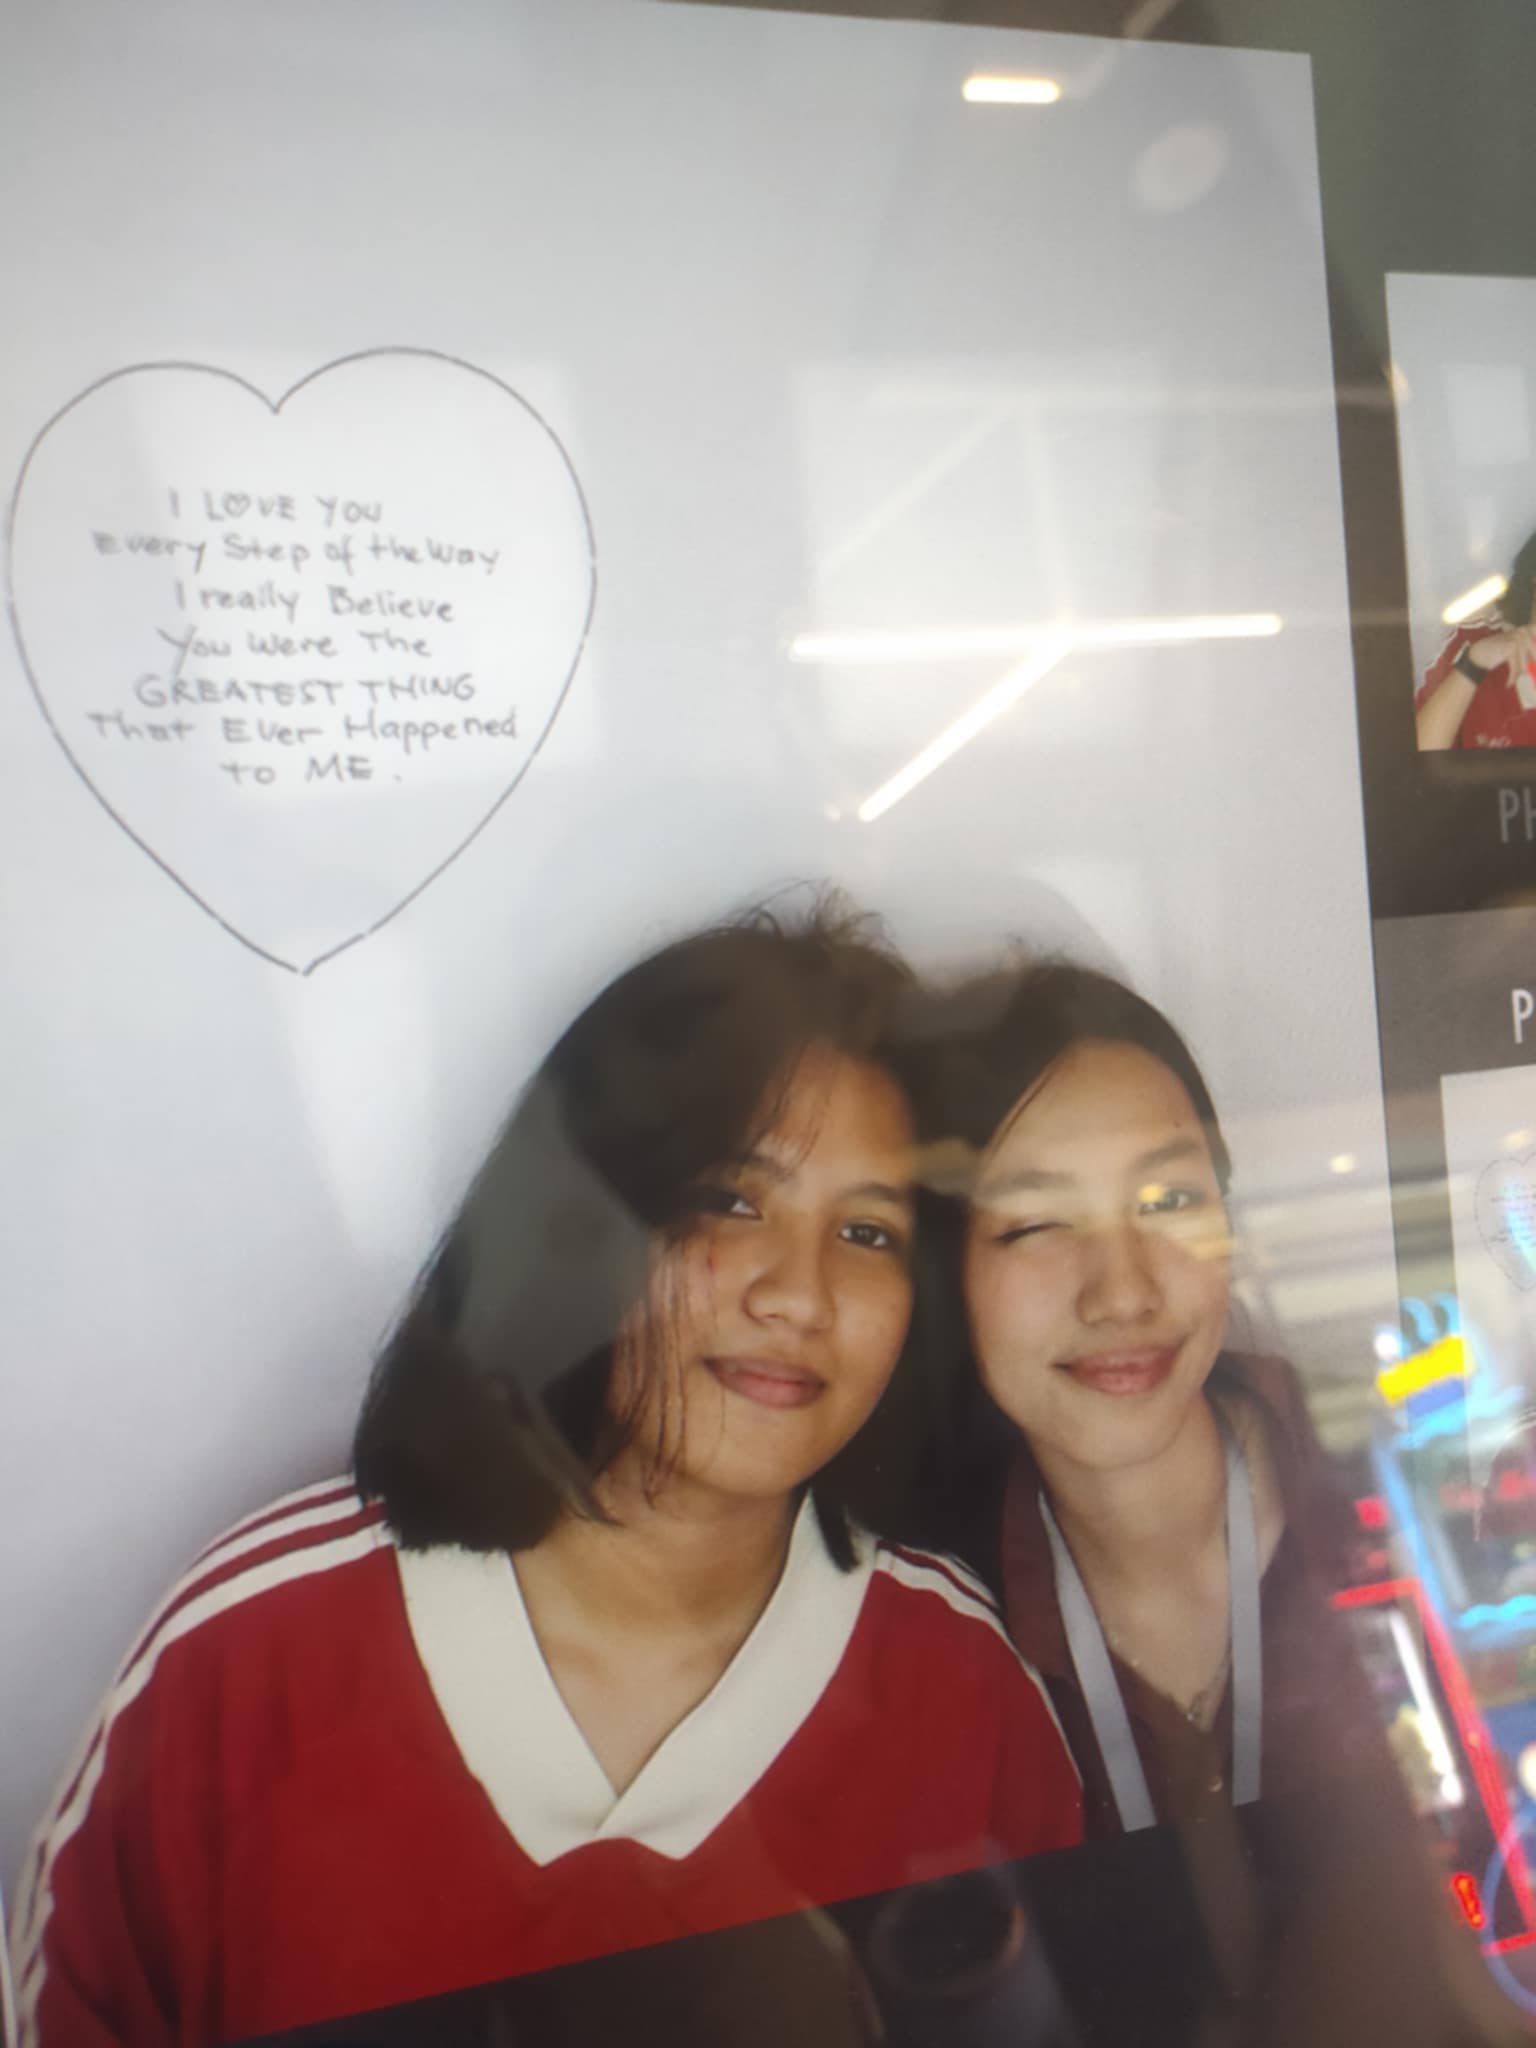 I LOVE YOU
Every Step of the Way
I really Believe
You Were The
GREATEST THING
That Ever Happened
to ME.
PH
P